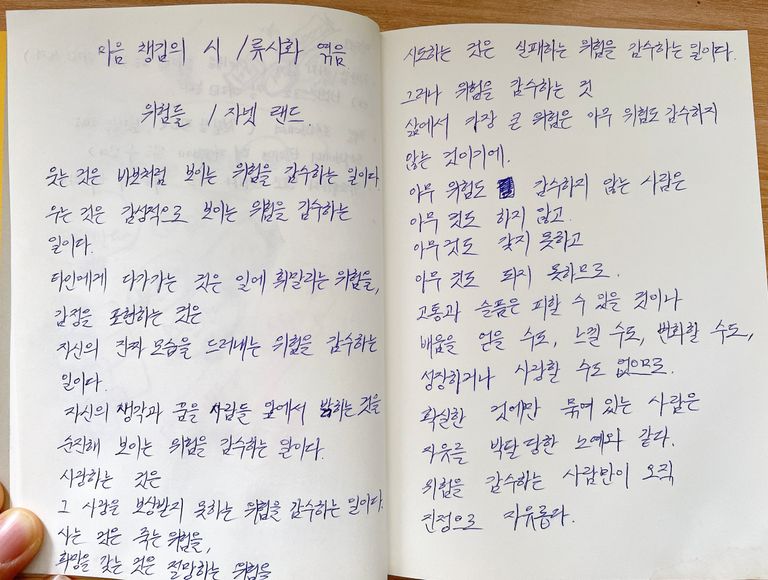 마음 챙김의 시 / 류시화 엮음
위험들 / 자넷 랜드.
웃는 것은 바보처럼 보이는 위험을 감수하는 일이다.
우는 것은 감성적으로 보이는 위험을 감수하는
일이다.
타인에게 다가가는 것은 일에 휘말리는 위험을,
감정을 표현하는 것은
자신의 진짜 모습을 드러내는 위험을 감수하는
일이다.
자신의 생각과 꿈을 사람들 앞에서 밝히는 것은
순진해 보이는 위험을 감수하는 일이다.
사랑하는 것은
그 사랑을 보상받지 못하는 위험을 감수하는 일이다.
사는 것은 죽는 위험을,
희망을 갖는 것은 절망하는 위험을
시도하는 것은 실패하는 위험을 감수하는 일이다.
그러나 위험을 감수하는 것
삶에서 가장 큰 위험은 아무 위험도 감수하지
않는 것이기에.
아무 위험도 감수하지 않는 사람은
아무 것도 하지 않고
아무것도 갖지 못하고
아무 것도 되지 못하므로.
고통과 슬픔은 피할 수 있을 것이나
배움을 얻을 수도, 느낄 수도, 변화할 수도,
성장하거나 사랑할 수도 없으므로.
확실한 것에만 묶여 있는 사람은
자유를 박탈 당한 노예와 같다.
위험을 감수하는 사람만이 오직
진정으로 자유롭다.